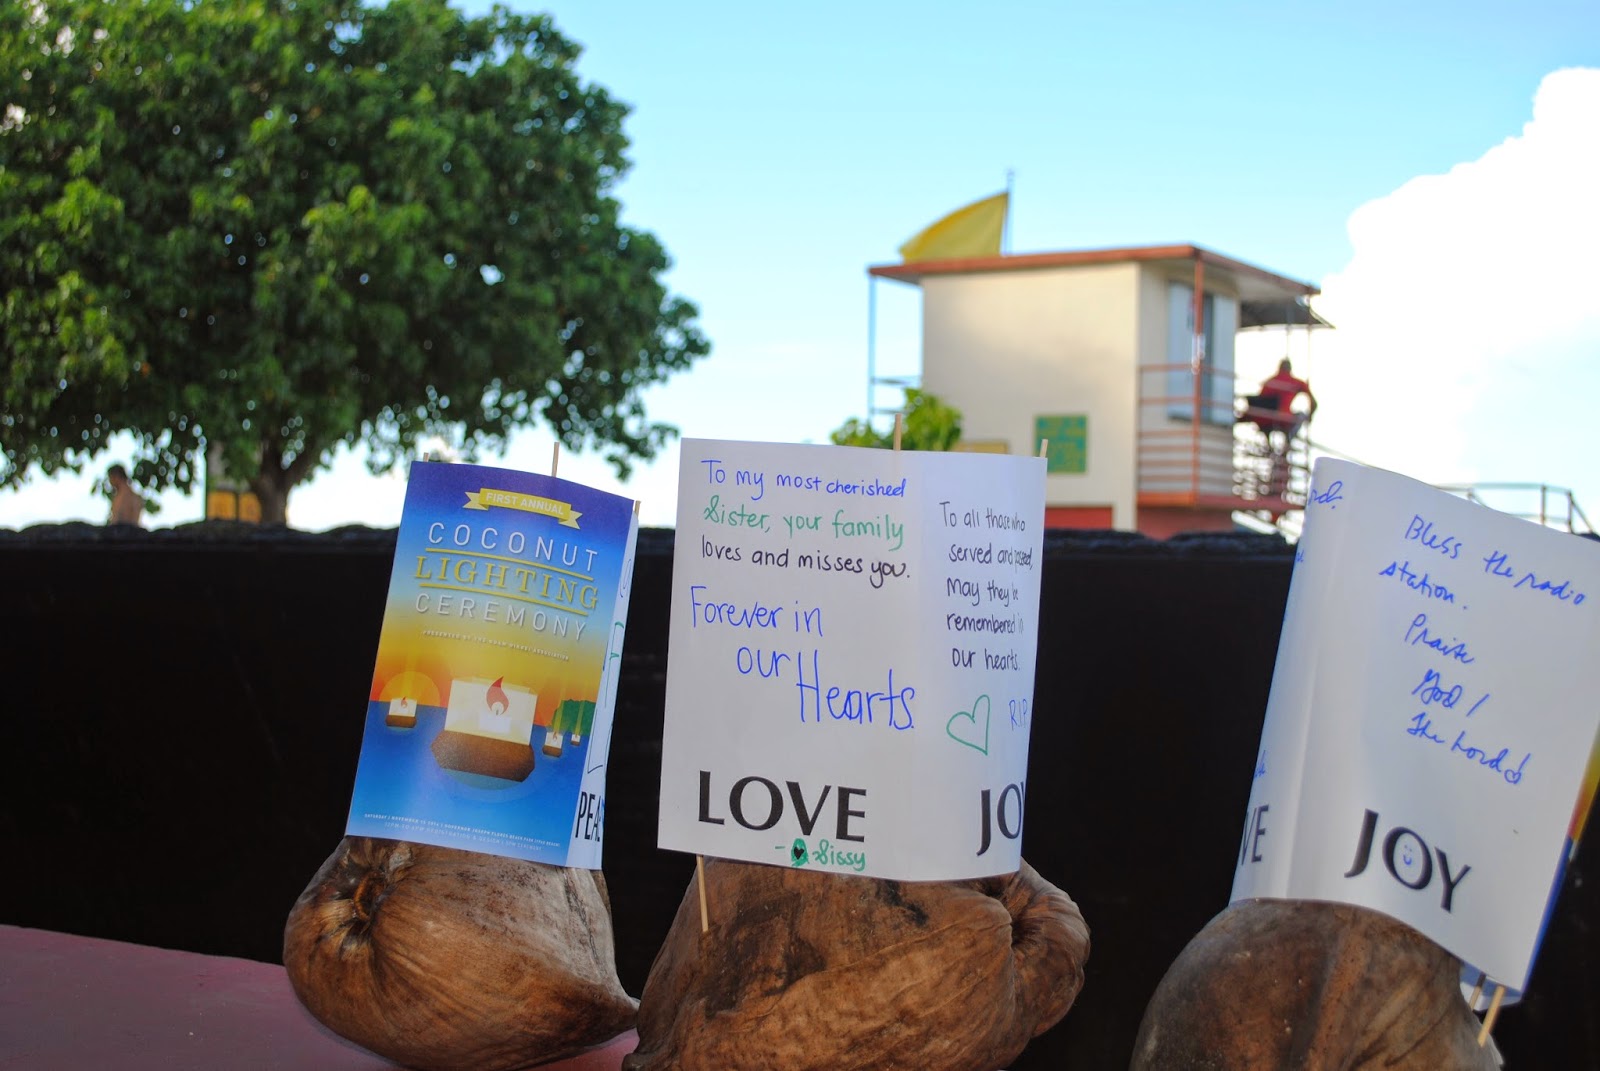 FIRST ANNUAL
COCONUT
LIGHTING
CEREMONY
PRESENTED BY THE GUAM VISITORS ASSOCIATION
PEA
To my most cherished
Sister, your family
loves and misses you.
Forever in
our
Hearts.
LOVE
- Sissy
To all those who
served and passed,
May they be
remembered in
our hearts.
RIP
JO
VE
Bless the radio
station.
Praise
God!
The Lord!
JOY